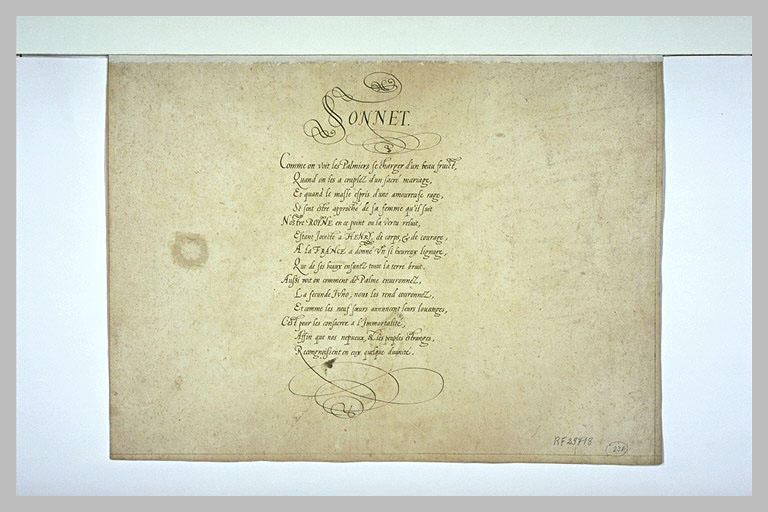 SONNET.
Comme on voit les Palmiers se charger d'un beau fruict,
Quand on les a couplez d'un sacré mariage,
Et quand le masle espris d'une amoureuse rage,
Se sent estre approché de sa femme qu'il suit
Nostre ROYNE en ce point ou la vertu reluit,
Estant joincte a HENRY, de corps & de courage,
A la FRANCE a donné un si heureux lignage,
Que de ses beaux enfantz toute la terre bruit.
Aussi voit on comment de Palme environnez,
La feconde Juno, nous les rend couronnez,
Et comme les neuf sœurs annoncent leurs louanges,
C'est pour les consacrer a l'Immortalité,
Affin que nos nepveux, & les peuples estranges,
Recongnoissent en eux quelque divinité.
RF 29718